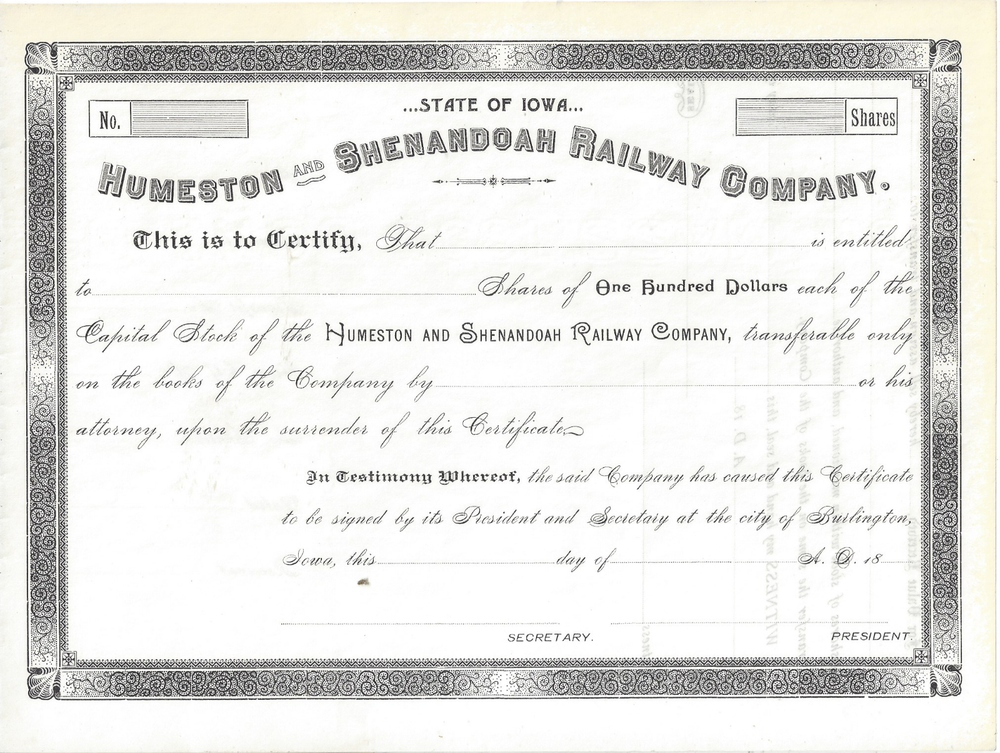 ...STATE OF IOWA...
No.
Shares
HUMESTON AND SHENANDOAH RAILWAY COMPANY.
This is to Certify, That is entitled
to Shares of One Hundred Dollars each of the
Capital Stock of the HUMESTON AND SHENANDOAH RAILWAY COMPANY, transferable only
on the books of the Company by or his
attorney, upon the surrender of this Certificate
In Testimony Whereof, the said Company has caused this Certificate
to be signed by its President and Secretary at the city of Burlington,
Iowa, this day of A. D. 18
SECRETARY. PRESIDENT.